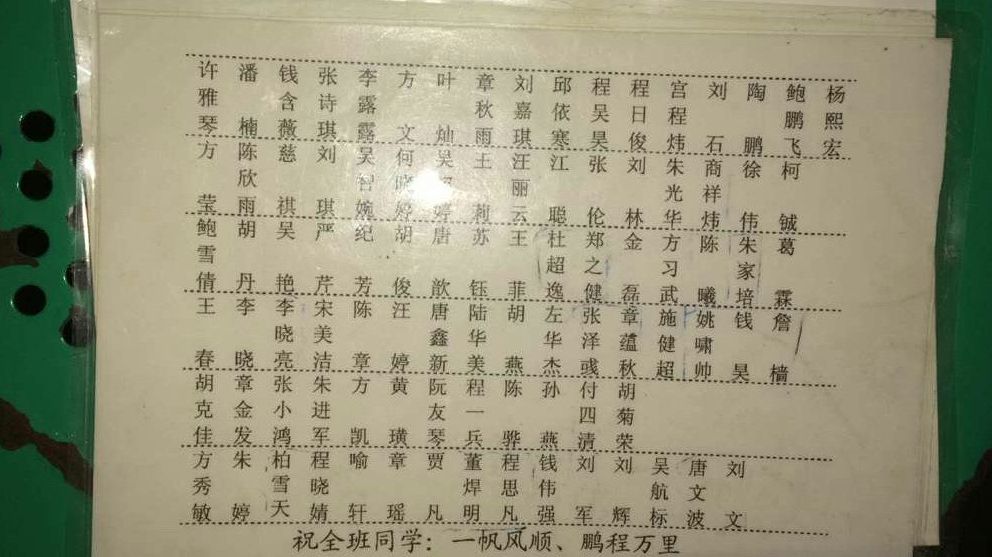 许雅琴 潘楠 钱含薇 张诗琪 李露露 方文 叶灿 章秋雨 刘嘉琪 邱依寒 程吴昊 程日俊 宫程炜 刘石 陶鹏 鲍鹏飞 杨熙宏
方莹 陈欣雨 慈祺 刘琪 吴智婉 何晓婷 王莉 汪丽云 江聪 张伦 刘林 朱光华 商祥炜 徐伟 柯铖
鲍雪倩 胡丹 吴艳 严芹 纪芳 胡俊 唐歆 苏钰 王菲 杜超逸 郑之健 金磊 方习武 陈曦 朱家培 葛霖
王春 李晓 李晓亮 宋美洁 陈章 汪婷 唐鑫新 陆华美 胡燕 左华杰 张泽彧 章蕴秋 施健超 姚啸帅 钱昊 詹樯
胡克佳 章金发 张小鸿 朱进军 方凯 黄璜 阮友琴 程一兵 陈骅 孙燕 付四清 胡菊荣
方秀敏 朱婷 柏雪天 程晓婧 喻轩 章瑶 贾凡 董焊明 程思凡 钱伟强 刘军 刘辉 吴航标 唐文波 刘文
祝全班同学：一帆风顺、鹏程万里